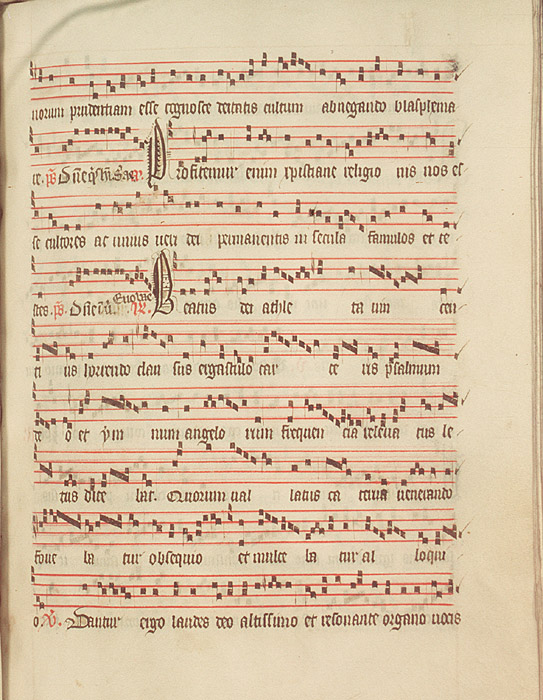 norum prudentiam esse cognosce deitatis cultum abnegando blasphema
te. ps Dne qs hi Sae
Profitemur enim xpistiane religio nis nos es
se cultores ac unius veri dei permanentis in secula famulos et te
stes. ps Dne dns Euouae R. Beatus dei athle ta vin cen
ti us horrendo clau sus ergastulo car ce ris psalmum
de o et ym num angelo rum frequen cia releva tus le
tus dice bat. Quorum val latus ca terva venerando
fove ba tur obsequio et mulce ba tur al loqui
o. V. Dantur ergo laudes deo altissimo et resonante organo vocis